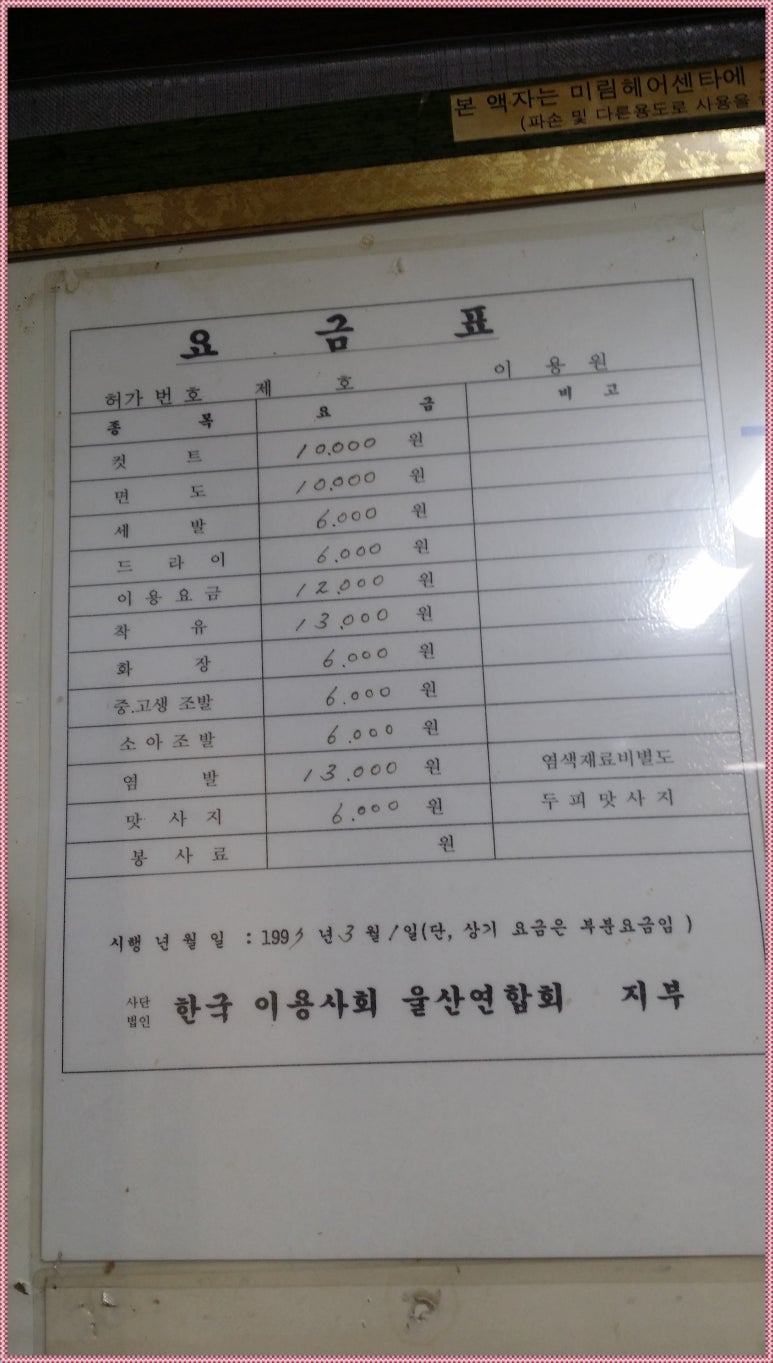 본 액자는 미림헤어센타에
(파손 및 다른용도로 사용을
요 금 표
허가 번 호 제 호 이 용 원
종 목 요 금 비 고
컷 트 10.000 원
면 도 10.000 원
세 발 6.000 원
드 라 이 6.000 원
이 용 요 금 12.000 원
착 유 13.000 원
화 장 6.000 원
중.고생 조발 6.000 원
소 아 조 발 6.000 원
염 발 13.000 원 염색재료비별도
맛 사 지 6.000 원 두 피 맛 사 지
봉 사 료 원
시행 년 월 일 : 년 3 월 1 일(단, 상기 요금은 부분요금임 )
사단
법인 한국 이용사회 울산연합회 지부